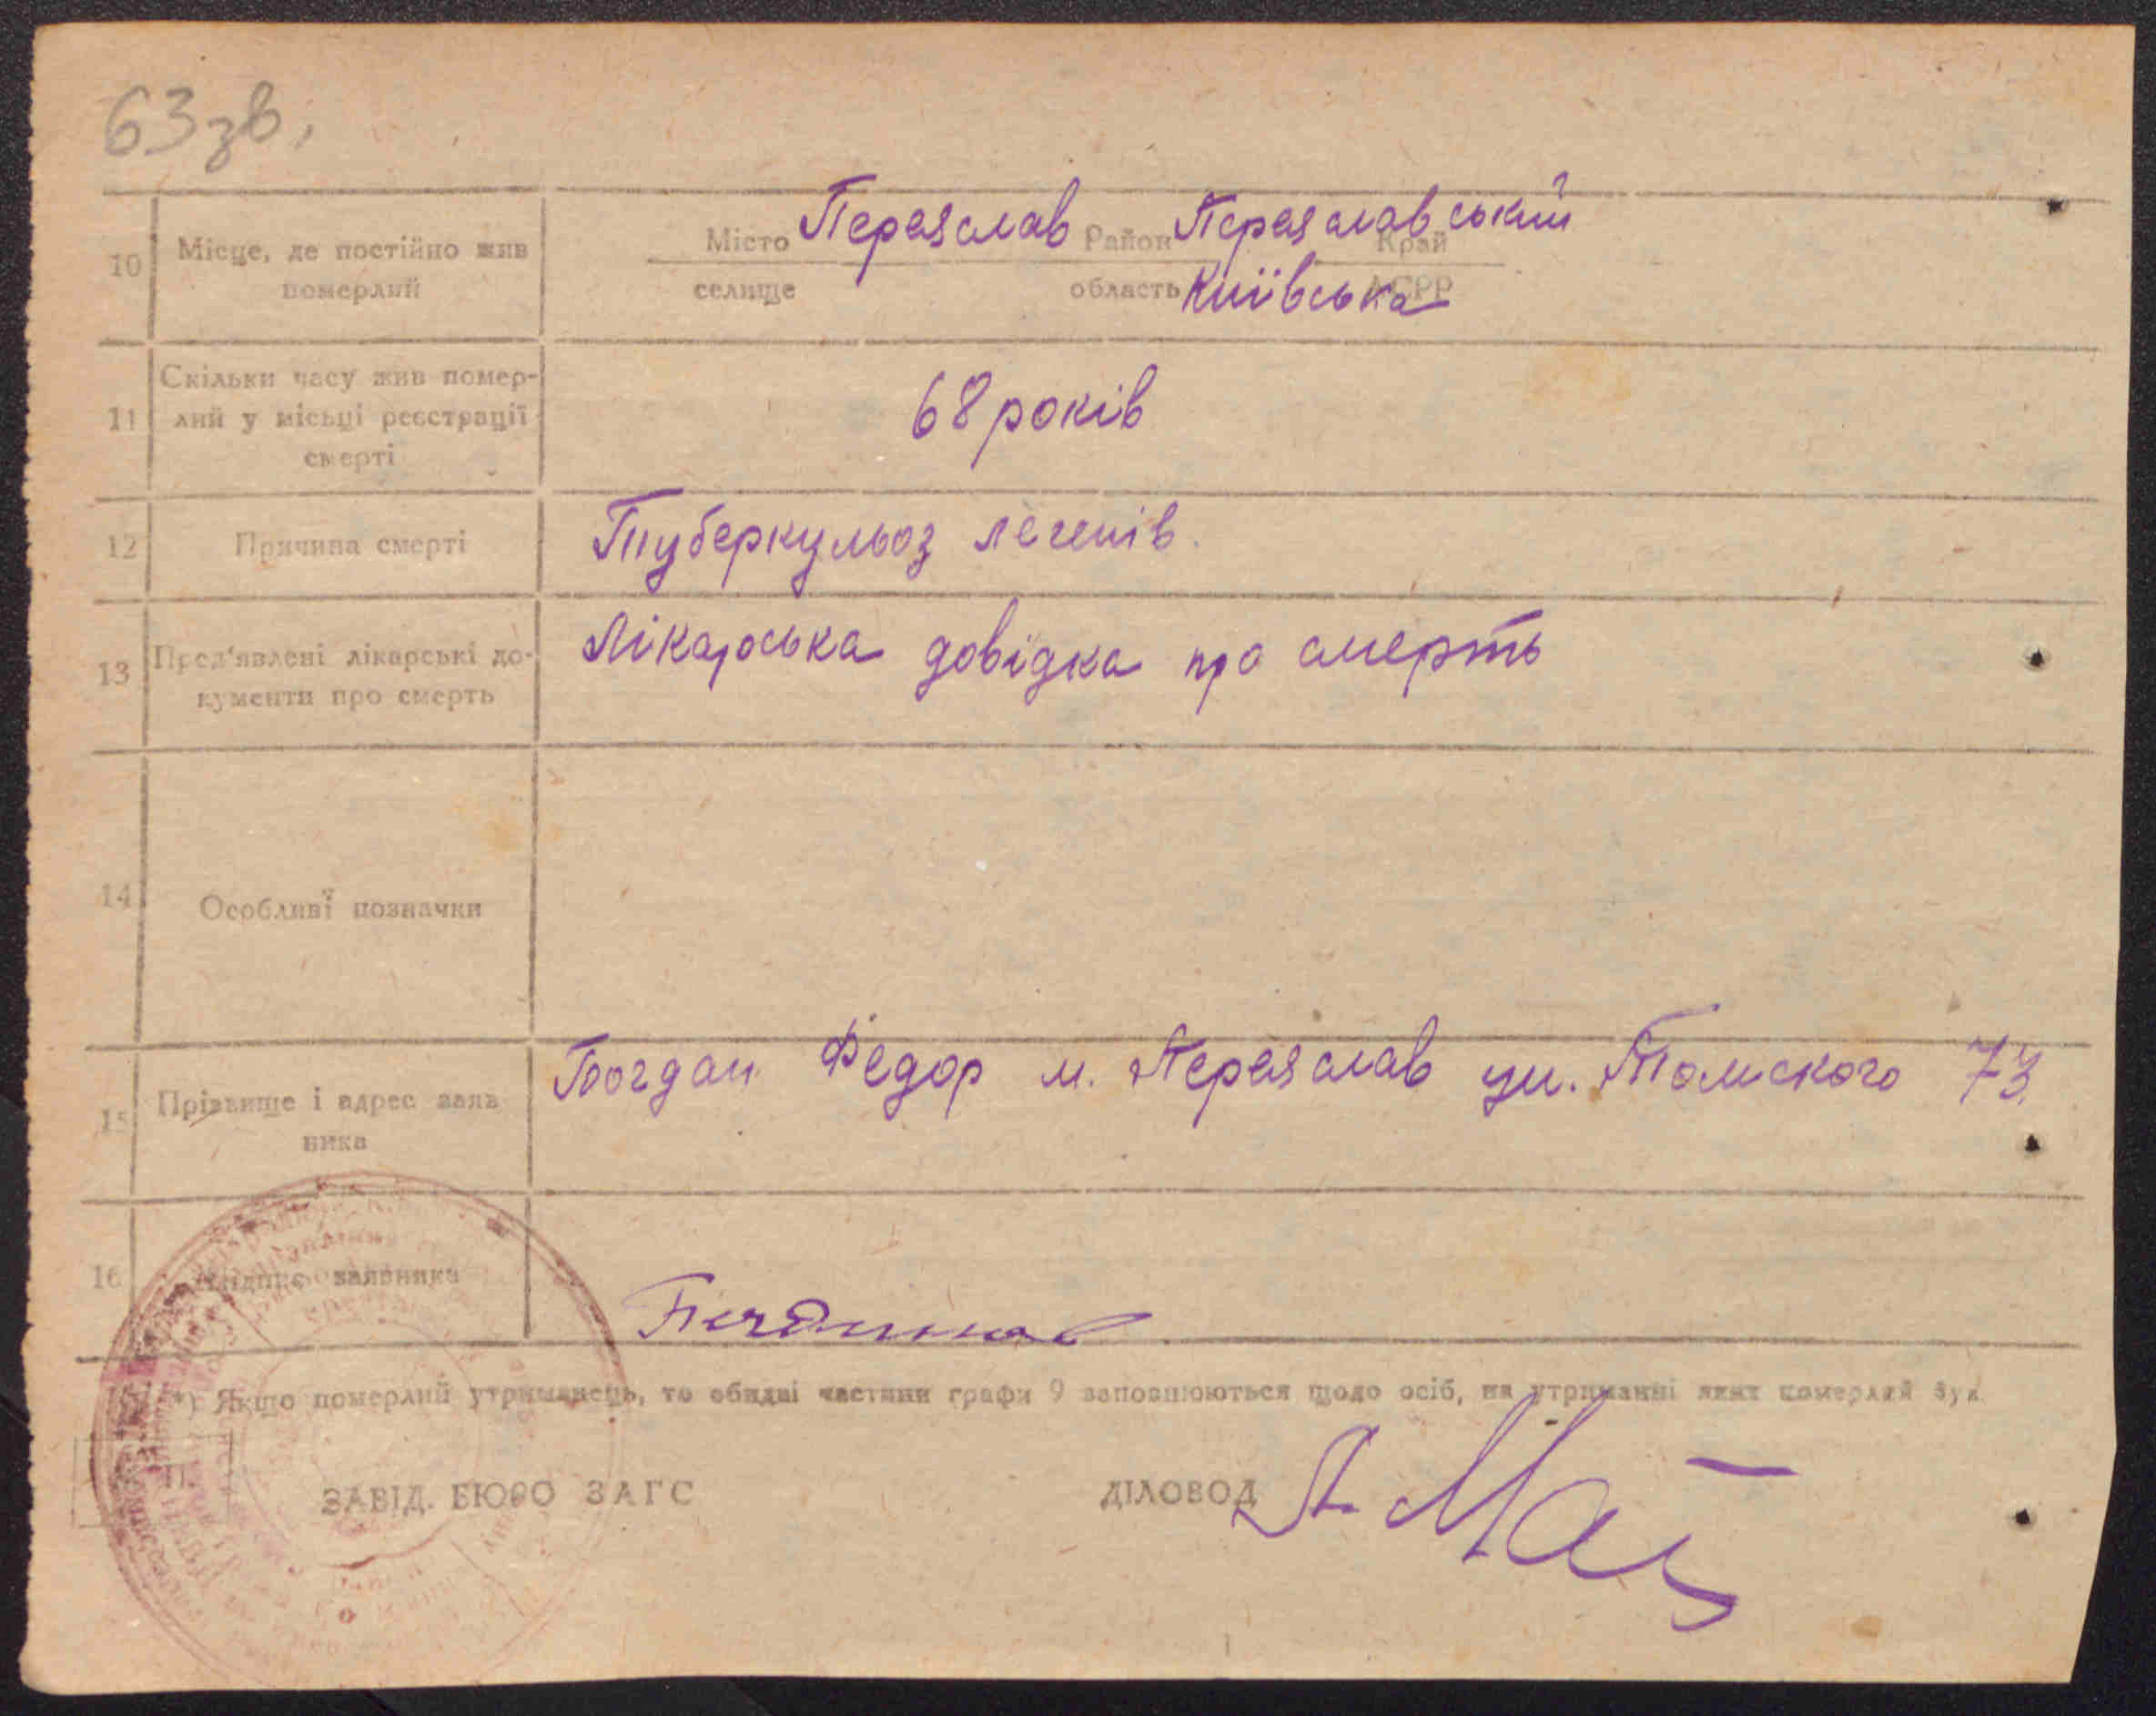 63зв,
10 Місце, де постійно жив Місто Переяслав Район Переяславський Край
померлий селище область Київська АСРР
11 Скільки часу жив помер-
лий у місьці реєстрації 68 років
смерті
12 Причина смерті Туберкульоз легенів.
13 Пред'явлені лікарські до- Лікарська довідка про смерть
кументи про смерть
14 Особливі позначки
15 Прізвище і адрес заяв Богдан Федор м. Переяслав ул. Томского 73
ника
16 заявника
*) Якщо померлий утриманець, то обидві частини графи 9 заповнюються щодо осіб, на утриманні яких померлий був
ЗАВІД. БЮРО ЗАГС ДІЛОВОД